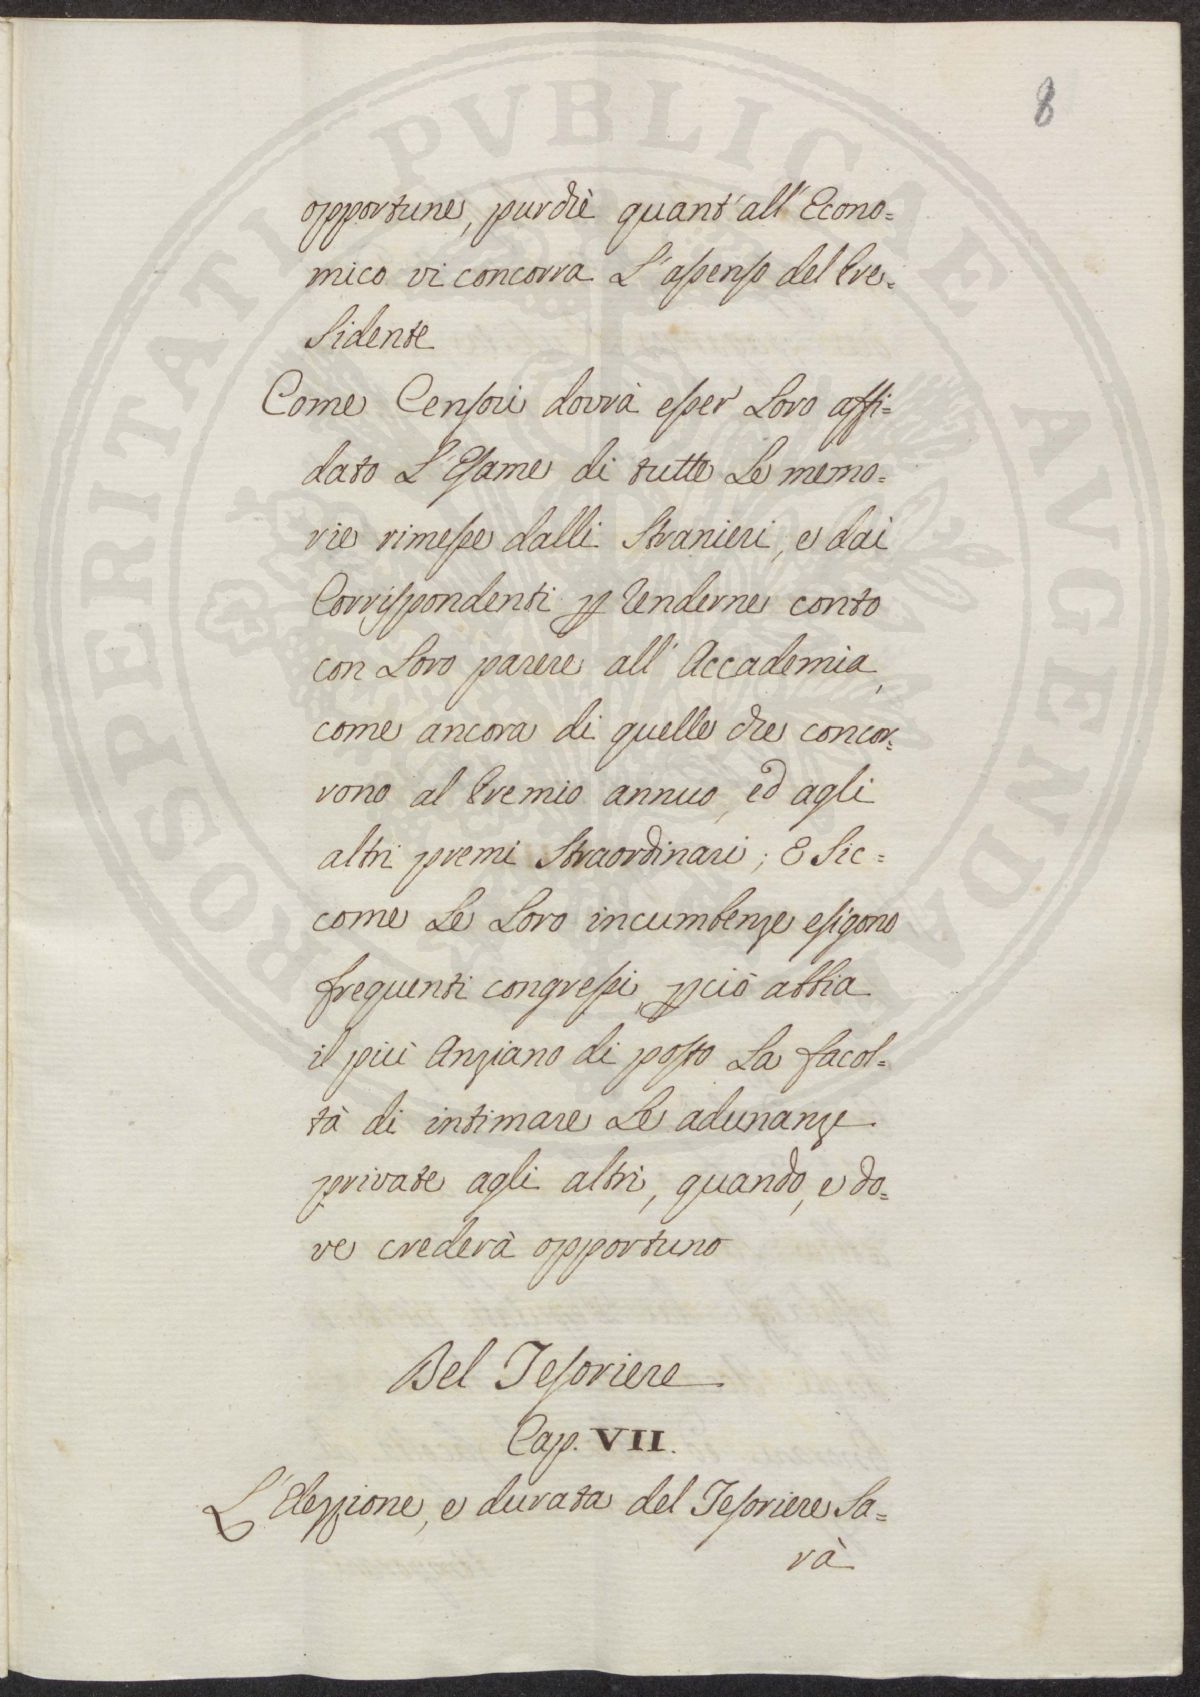 8
opportune, purchè quant'all'Econo=
mico vi concorra L'assenso del Pre=
sidente
Come Censori dovrà esser Loro affi=
dato L'Esame di tutte Le memo=
rie rimesse dalli Stranieri, e dai
Corrispondenti p renderne conto
con Loro parere all'Accademia,
come ancora di quelle che concor=
rono al Premio annuo, ed agli
altri premi Straordinari; E Sic=
come Le Loro incumbenze esigono
frequenti congressi, pciò abbia
il più Anziano di posto La facol=
tà di intimare Le adunanze
private agli altri, quando, e do=
ve crederà opportuno
Del Tesoriere
Cap. VII.
L'Elezzione, e durata del Tesoriere Sa=
rà
PROSPERITATI PVBLICAE AVGENDAE